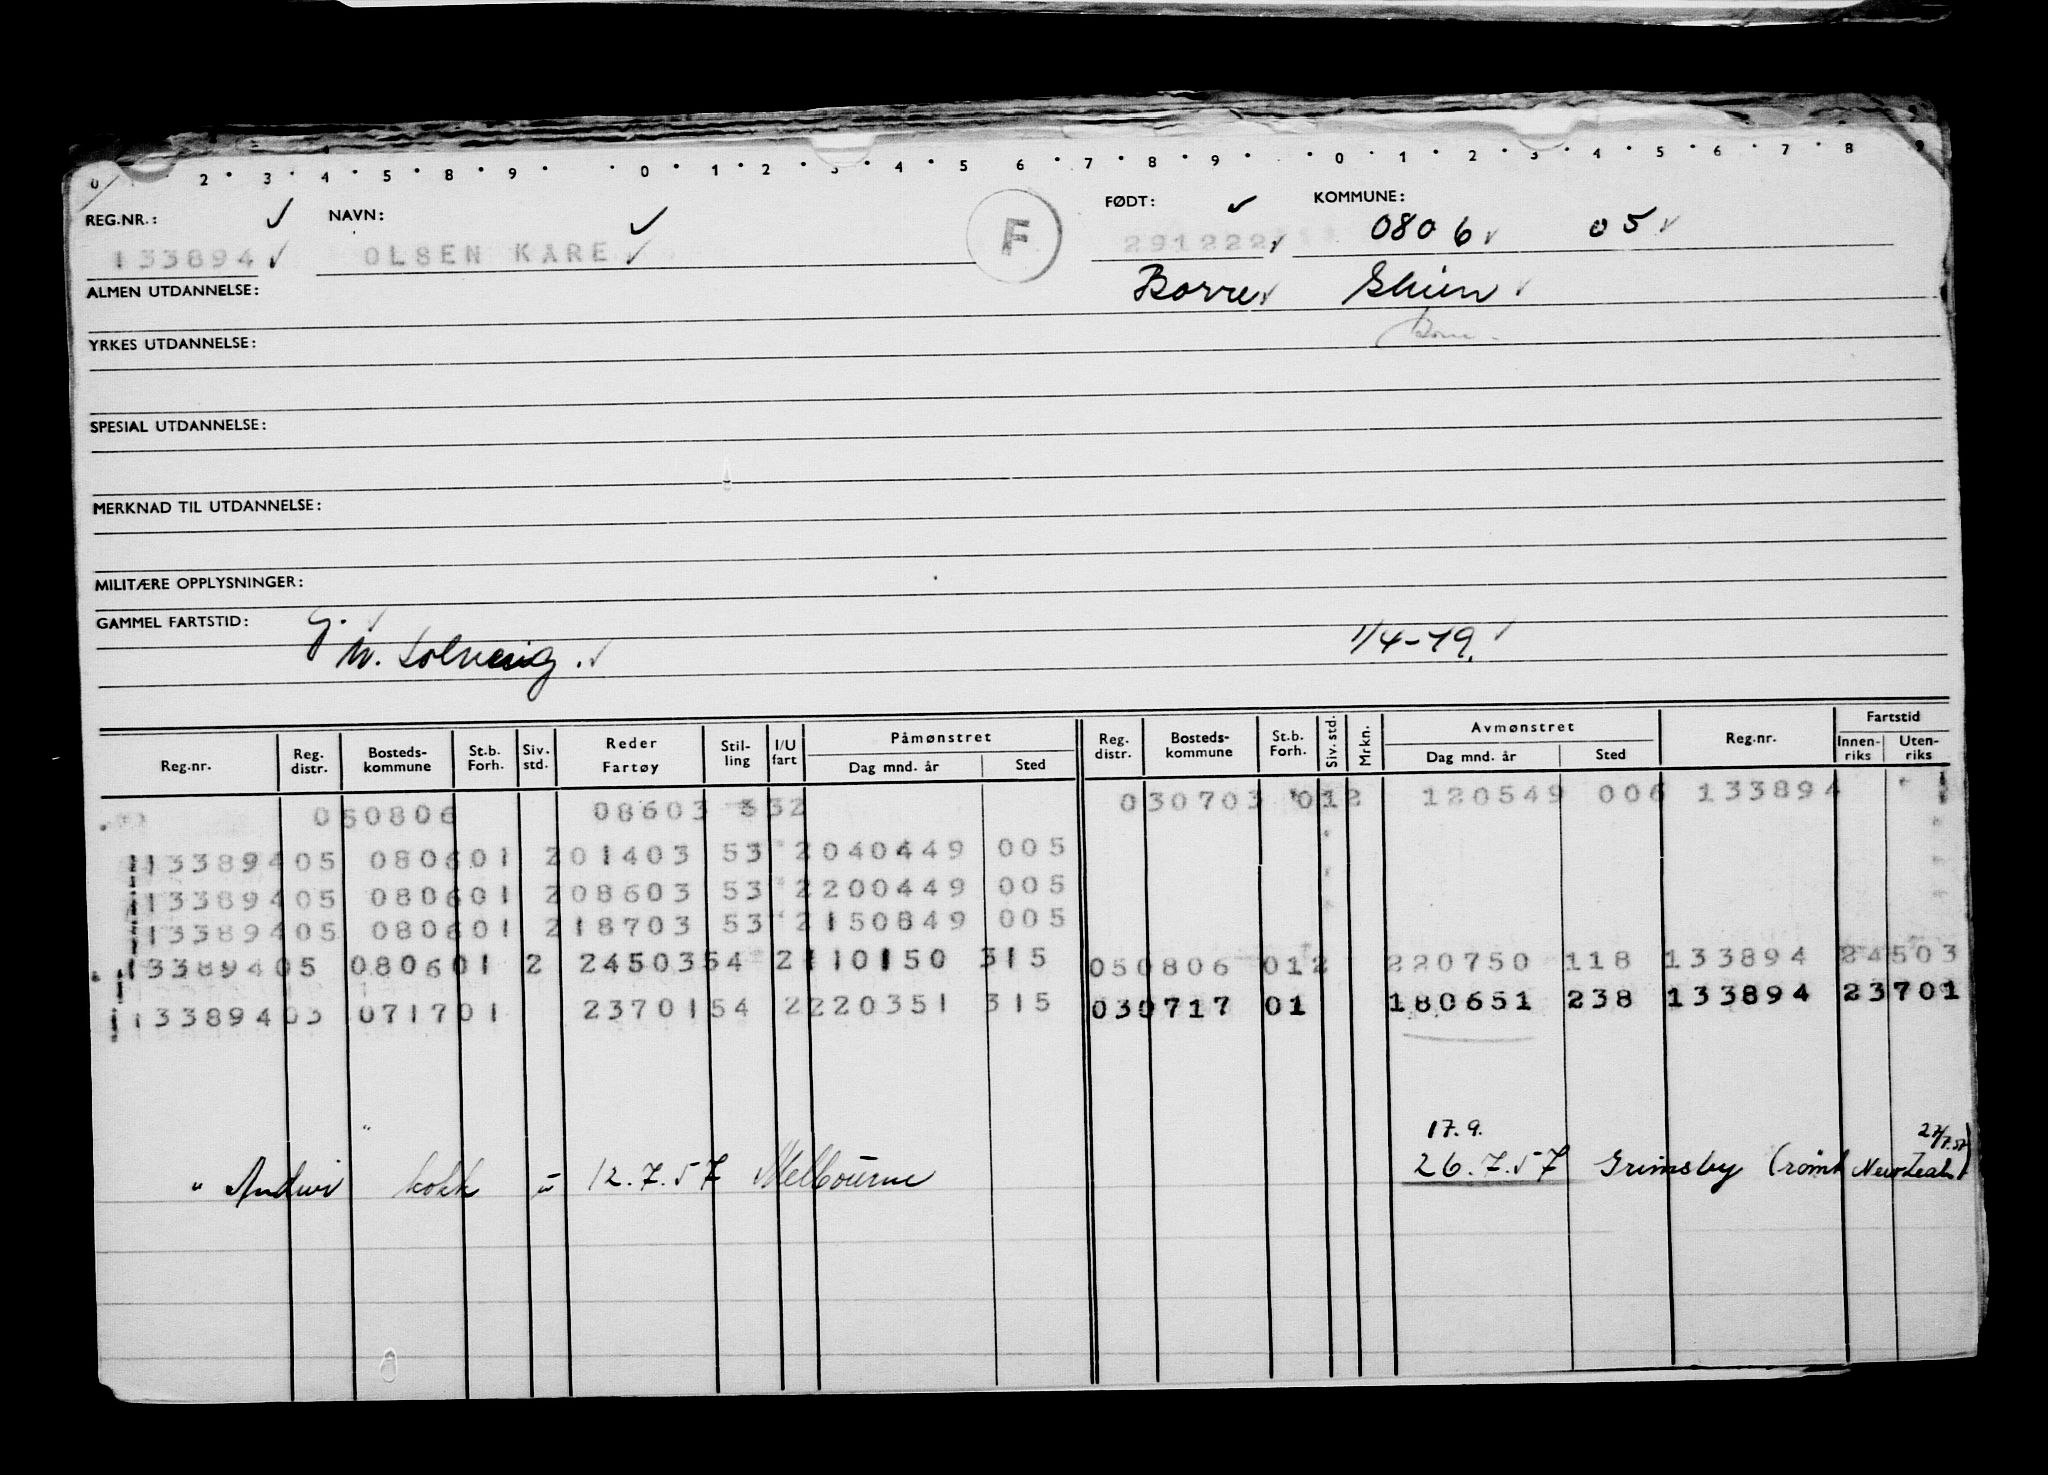 0 1 · 2 · 3 · 4 · 5 · 8 · 9 · 0 · 1 · 2 · 3 · 4 · 5 6 · 7 · 8 · 9 · · 0 · 1 · 2 · 3 · 4 · 5 · 6 · 7 · 8 9
REG.NR.: ✓ NAVN: ✓ FØDT: ✓ KOMMUNE:
133894 ✓ OLSEN KARE ✓ F 291222 ✓ 0806 ✓ 05 ✓
ALMEN UTDANNELSE: Borre ✓ Skien ✓
YRKES UTDANNELSE:
SPESIAL UTDANNELSE:
MERKNAD TIL UTDANNELSE:
MILITÆRE OPPLYSNINGER:
GAMMEL FARTSTID:
M. Solveig. ✓ 1/4-49. ✓
Reg.nr. Reg. distr. Bosteds-kommune St.b. Forh. Siv. std. Reder Fartøy Stil-ling I/U fart Påmønstret Dag mnd. år Sted Reg. distr. Bosteds-kommune St.b. Forh. Siv. std. Mrkn. Avmønstret Dag mnd. år Sted Reg.nr. Fartstid Innen-riks Uten-riks
050806 08603 332 030703 012 120549 006 133894
13389405 080601 201403 53 2040449 005
13389405 080601 208603 53 2200449 005
13389405 080601 218703 53 2150849 005
13389405 080601 2 2450354 2110150 315 050806 012 220750 118 133894 24503
13389403 071701 2370154 2220351 315 030717 01 180651 238 133894 23701
17.9. 27/7.57
" Andwi kokk " 12.7.57 Melbourne 26.7.57 Grimsby (rømt New Zeal.)